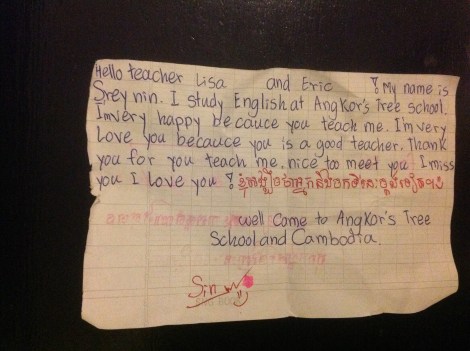 Hello teacher Lisa and Eric ! My name is
Srey nin. I study English at Angkor's Tree school.
I'm very happy becauce you teach me. I'm very
Love you becauce you is a good teacher. Thank
you for you teach me. nice too meet you I miss
you I Love you !
well come to Angkor's Tree
School and Cambodia.
Sin